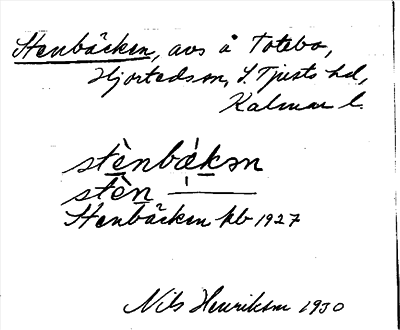 Stenbäcken, avs å Totebo,
Hjorteds sn, S. Tjusts hd,
Kalmar l.
stènbákən
stèn
Stenbäcken kb 1927
Nils Henrikson 1930